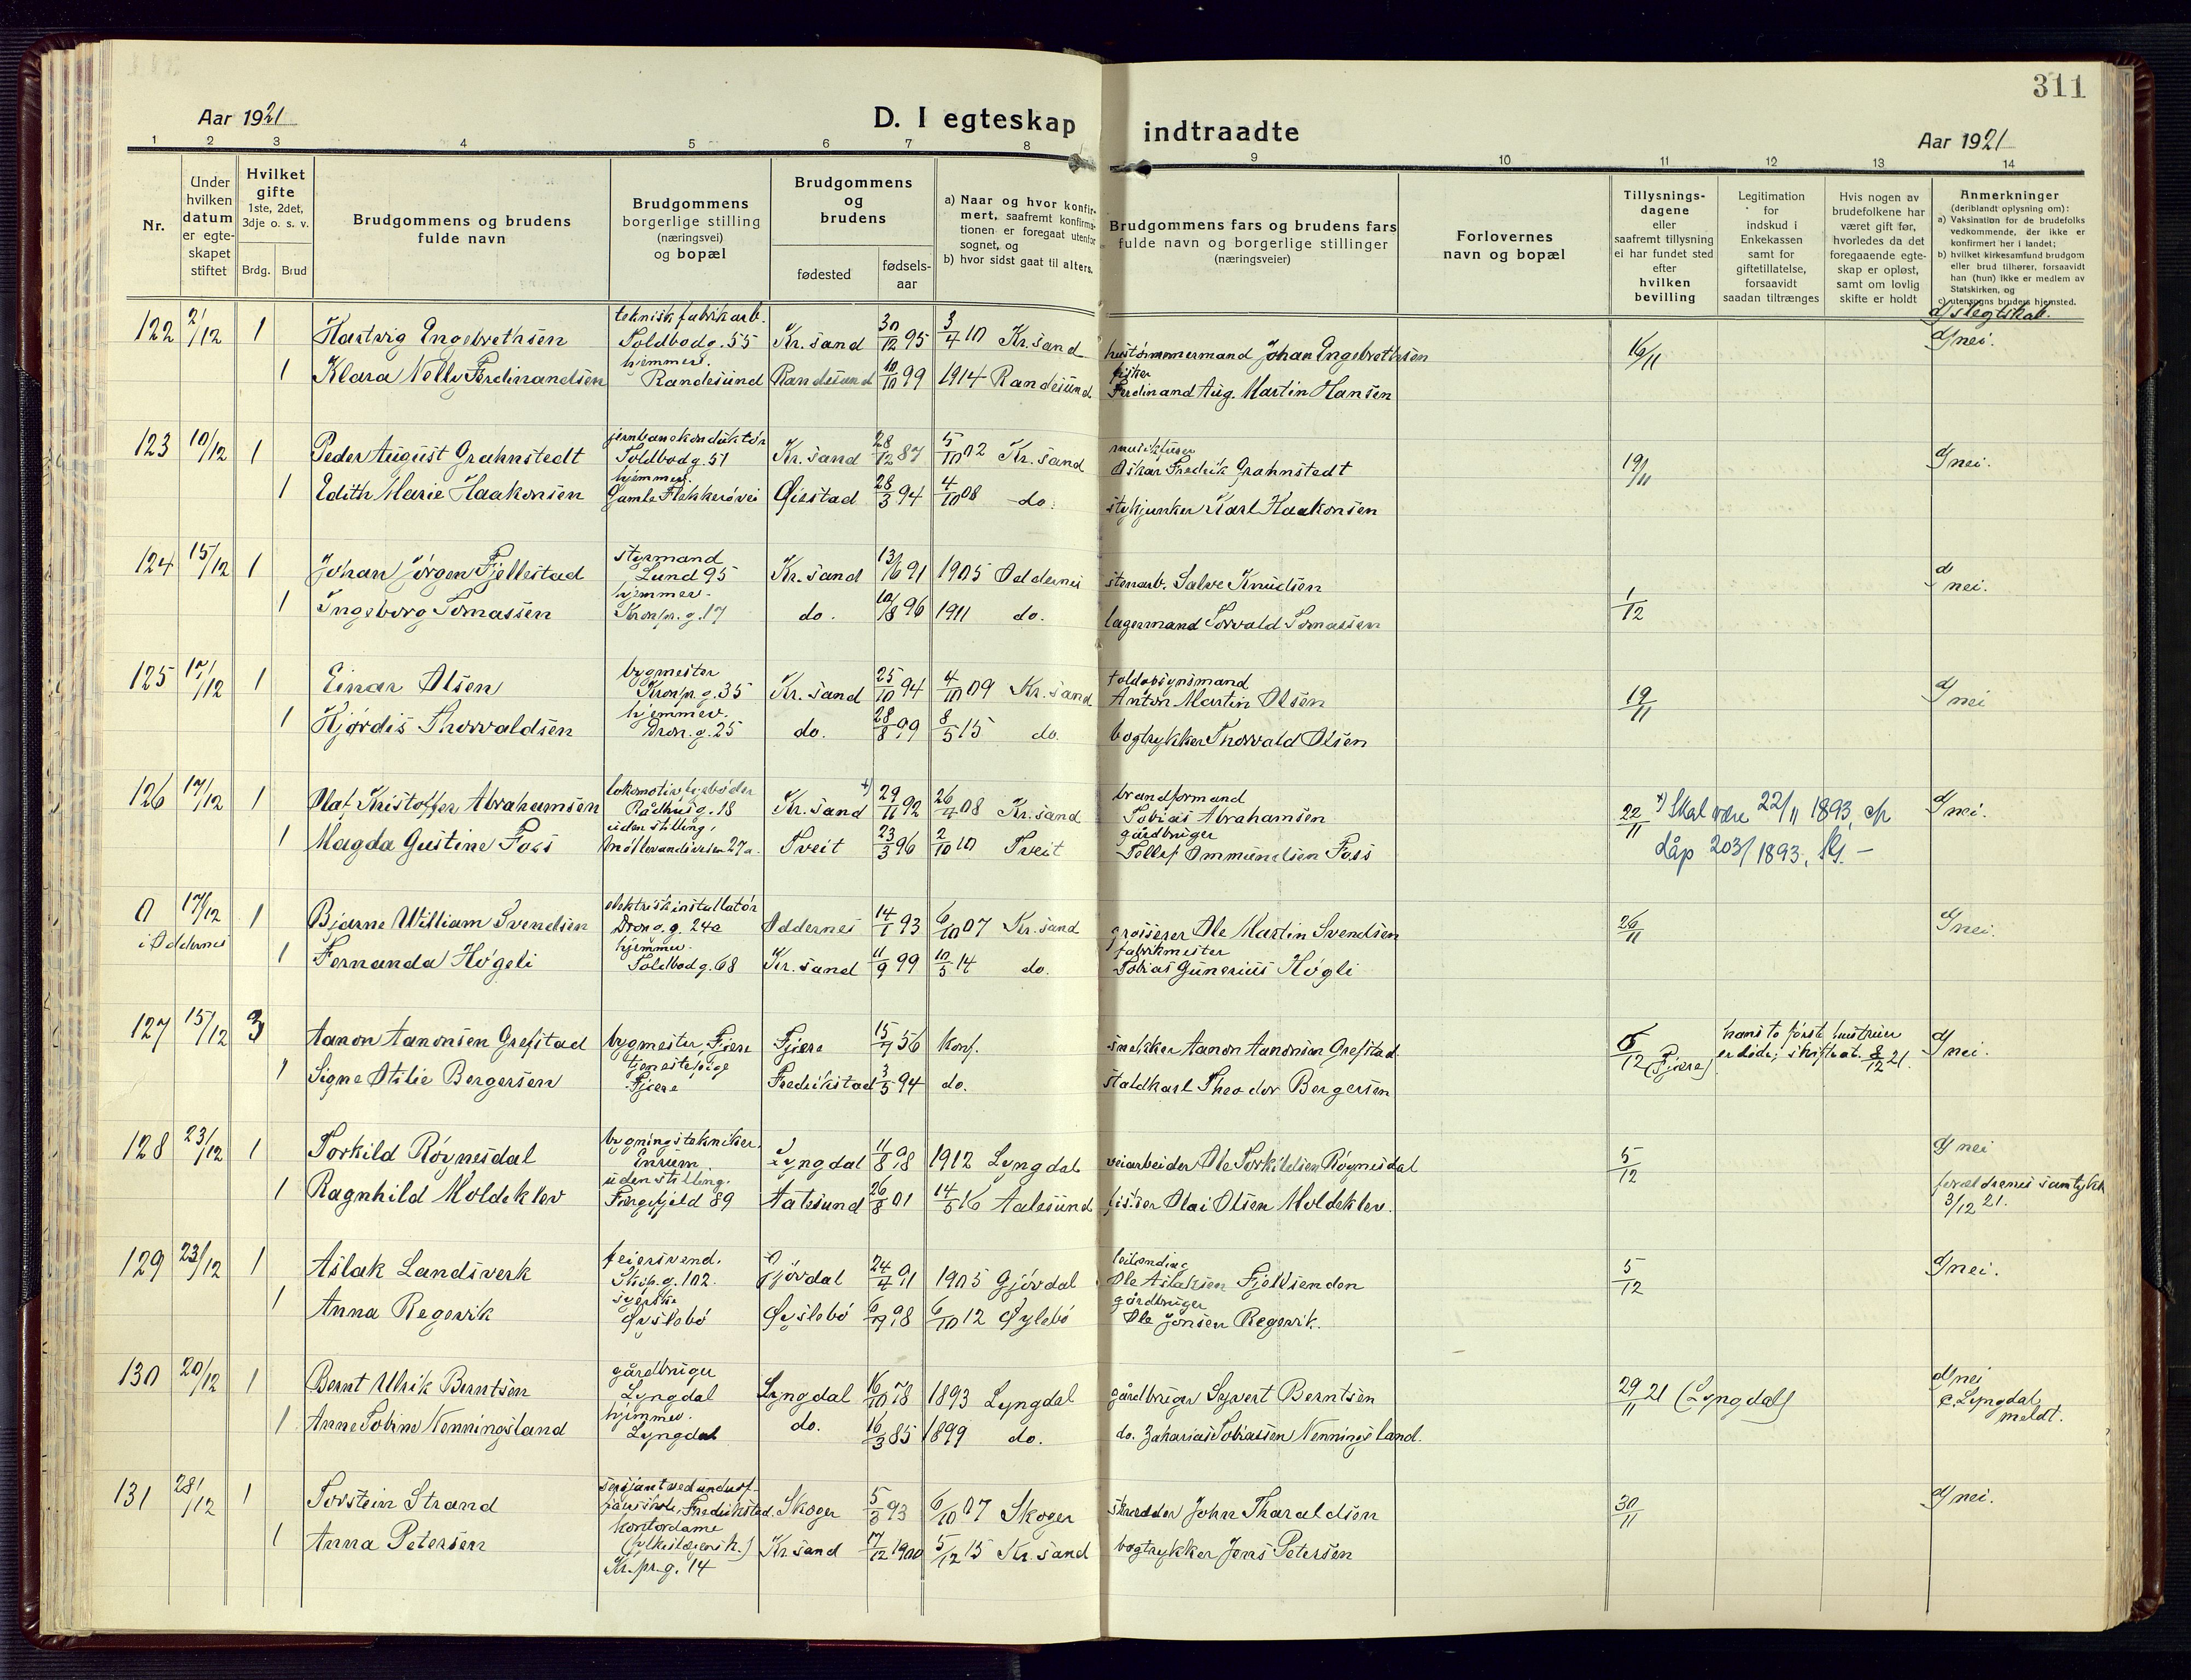 311
Aar 1921
D. I egteskap indtraadte
Aar 1921
1 2 3 4 5 6 7 8 9 10 11 12 13 14
Nr.
Under hvilken datum er egteskapet stiftet
Hvilket gifte 1ste, 2det, 3dje o. s. v.
Brdg. Brud
Brudgommens og brudens fulde navn
Brudgommens borgerlige stilling (næringsvei) og bopæl
Brudgommens og brudens
fødested
fødselsaar
a) Naar og hvor konfirmert, saafremt konfirmationen er foregaat utenfor sognet, og
b) hvor sidst gaat til alters.
Brudgommens fars og brudens fars fulde navn og borgerlige stillinger (næringsveier)
Forlovernes navn og bopæl
Tillysningsdagene eller saafremt tillysning ei har fundet sted efter hvilken bevilling
Legitimation for indskud i Enkekassen samt for giftetillatelse, forsaavidt saadan tiltrænges
Hvis nogen av brudefolkene har været gift før, hvorledes da det foregaaende egteskap er opløst, samt om lovlig skifte er holdt
Anmerkninger (deriblandt oplysning om):
a) Vaksination for de brudefolks vedkommende, der ikke er konfirmert her i landet;
b) hvilket kirkesamfund brudgom eller brud tilhører, forsaavidt han (hun) ikke er medlem av Statskirken, og
c) utensogns bruders hjemsted.
d) slegtskab.
122 2/12 1 Hartvig Engebrethsen teknisk fabrikarb. Toldbodg. 55 Kr.sand 30/12 95 3/4 10 Kr.sand hustømmermand Johan Engebrethsen 16/11 d) nei.
1 Klara Nelly Ferdinandsen hjemmev. Randesund Randesund 10/10 99 1914 Randesund fisker Ferdinand Aug. Martin Hansen
123 10/12 1 Peder August Grahnstedt jernbanekonduktør Toldbodg. 51 Kr.sand 28/12 87 5/10 02 Kr.sand Oskar Fredrik Grahnstedt 19/11 d) nei.
1 Edith Marie Haakonsen hjemmev. Gamle Flekkerøvei Øiestad 28/3 94 4/10 08 do. stykjunker Karl Haakonsen
124 15/12 1 Johan Jørgen Fjellestad styrmand Lund 95 Kr.sand 13/6 91 1905 Oddernes stenarb. Salve Knudsen 1/12 d) nei.
1 Ingeborg Tomassen hjemmev. Kronpr.g. 17 do. 10/8 96 1911 do. lagermand Torvald Tomassen
125 17/12 1 Einar Olsen bygmester Kronpr.g. 35 Kr.sand 25/10 94 4/10 09 Kr.sand toldopsynsmand Anton Martin Olsen 19/11 d) nei
1 Hjørdis Thorvaldsen hjemmev. Dron.g. 25 do. 28/8 99 8/5 15 do. bogtrykker Thorvald Olsen
126 17/12 1 Olaf Kristoffer Abrahamsen lokomotivfyrbøder Rådhusg. 18 Kr.sand x) 29/11 92 26/4 08 Kr.sand brandformand Tobias Abrahamsen 22/11 x) Skal være 22/11 1893, cfr dåp 203/1893. d) nei.
1 Magda Gustine Foss uden stilling, Tveit 23/3 96 2/10 10 Tveit gårdbruger Tellef Ommundsen Foss
0 i Oddernes 17/12 1 Bjarne William Svendsen elektriskinstallatør Dron.g. 24a Oddernes 14/1 93 6/10 07 Kr.sand grosserer Ole Martin Svendsen 26/11 d) nei.
1 Fernanda Høgeli hjemmev. Toldbodg. 68 Kr.sand 11/9 99 10/5 14 do. fabrikmester Tobias Gunerius Høgli
127 15/12 3 Aanon Aanonsen Grefstad bygmester Fjære Fjære 15/7 56 konf. snekker Aanon Aanonsen Grefstad 6/12 (Fjære) hans to første hustruer er døde; skifteat. 8/12 21. d) nei.
1 Signe Otilie Bergersen tjenestepige Fjære Fredrikstad 3/5 94 do. staldkarl Theodor Bergersen
128 23/12 1 Torkild Røynesdal bygningstekniker. Enrum Lyngdal 11/8 98 1912 Lyngdal veiarbeider Ole Torkildsen Røynesdal 5/12 d) nei
1 Ragnhild Moldeklev uden stilling. Færgefjeld 89 Aalesund 26/8 01 14/5 16 Aalesund fisker Olai Olsen Moldeklev. forældrenes samtykke 3/12 21.
129 23/12 1 Aslak Landsverk feiersvend. Skip.g. 102. Gjövdal 24/4 91 1905 Gjövdal leilending Ole Aslaksen Fjeldsenden 5/12 d) nei.
1 Anna Regevik syerske Øyslebö Øyslebö 6/9 98 6/10 12 Øylebö gårdbruger Ole Jonsen Regevik.
130 20/12 1 Bernt Ulrik Berntsen gårdbruger Lyngdal Lyngdal 16/10 78 1893 Lyngdal gårdbruger Syvert Berntsen 29/11 21 (Lyngdal) d) nei c. Lyngdal, meldt.
1 Anne Tobine Nenningsland hjemmev. Lyngdal do. 16/3 85 1899 do. do. Zaharias Tobiassen Nenningsland.
131 28/12 1 Torstein Strand sersjant ved underof. Fredrikstad. Skoger 5/3 93 6/10 07 Skoger skrædder Johan Tharaldsen 30/11 d) nei.
1 Anna Petersen kontordame Kr.pr.g. 14 Kr.sand 17/12 1900 5/12 15 Kr.sand bogtrykker Jens Petersen